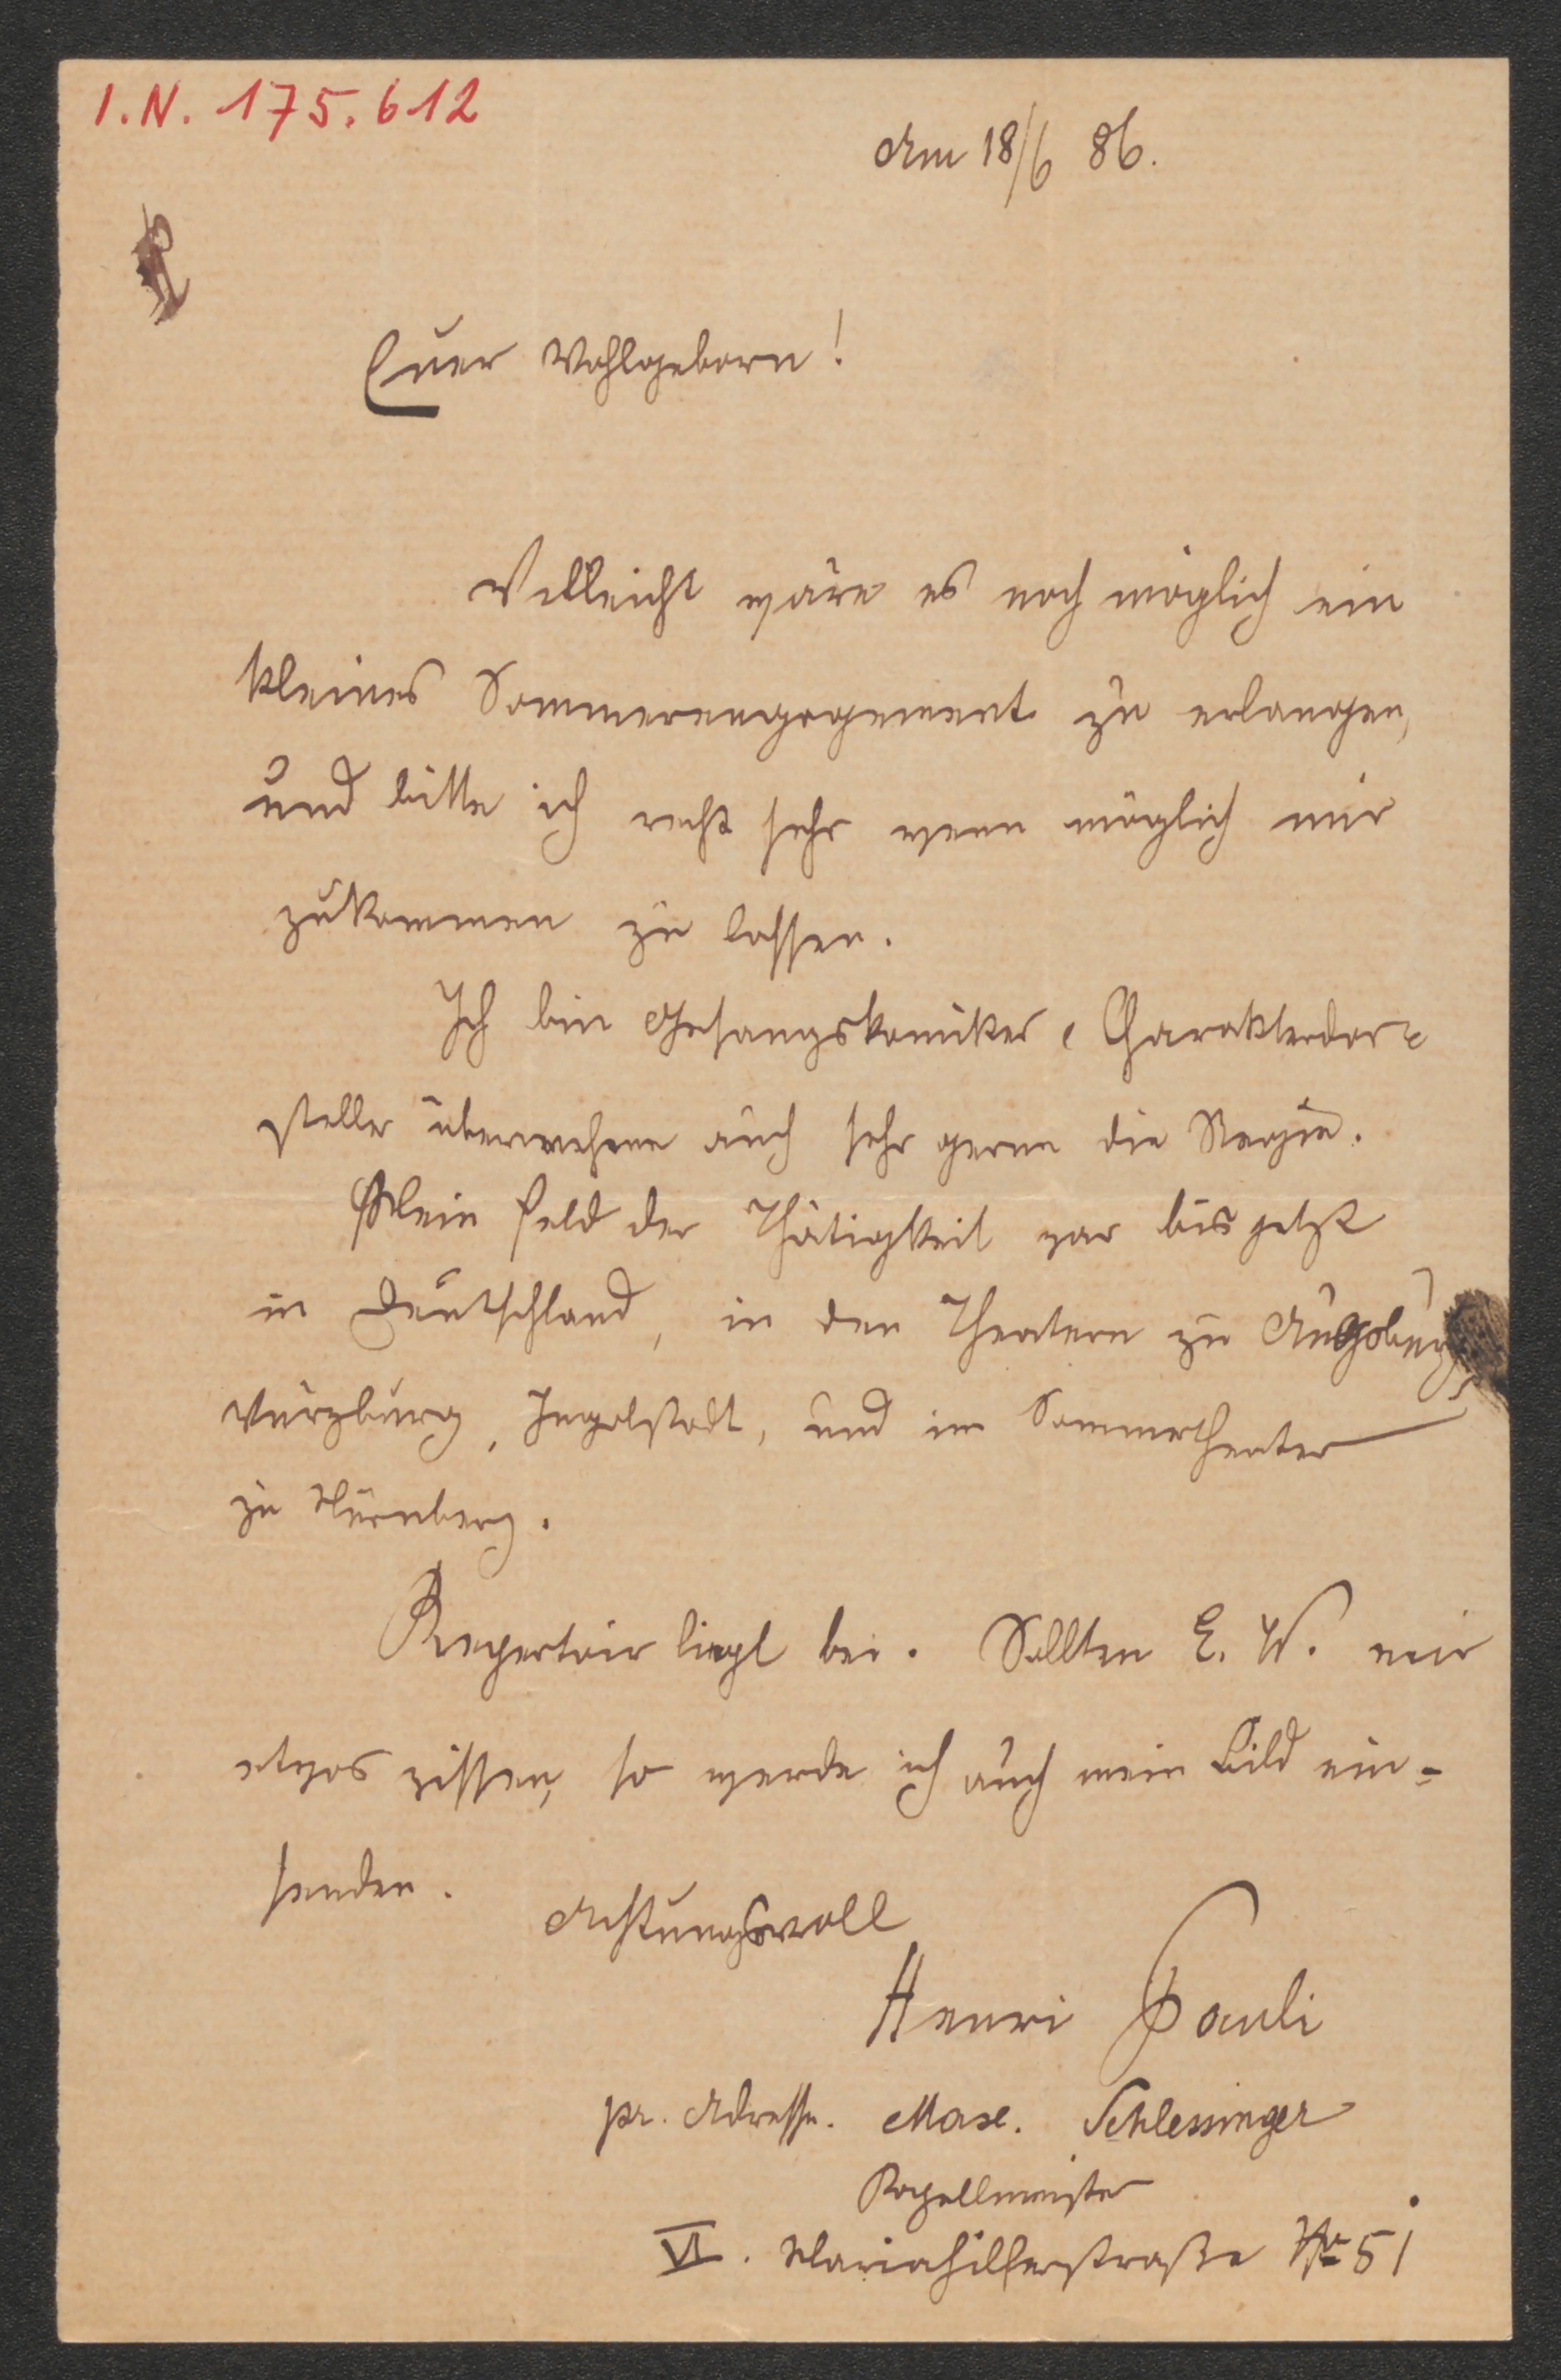 I.N. 175.612
Am 18/6 86.
Euer Wohlgeborn!
Villeicht wäre es noch möglich ein
kleines Sommerengagement zu erlangen,
und bitte ich recht sehr wenn möglich mir
zukommen zu lassen.
Ich bin Gesangskomiker, Charakterdar-
steller übernehme auch sehr gerne die Regie.
Mein Feld der Thätigkeit war bis jetzt
in Deutschland, in den Theatern zu Augsburg,
Würzburg, Ingolstadt, und im Sommertheater
zu Nürnberg.
Repertoir liegt bei. Sollten E. W. mir
etwas wissen, so werde ich auch mein Bild ein-
senden.
Achtungsvoll
Henri Pauli
pr. Adresse. Max. Schlessinger
Kapellmeister
VI. Mariahilferstraße No 51